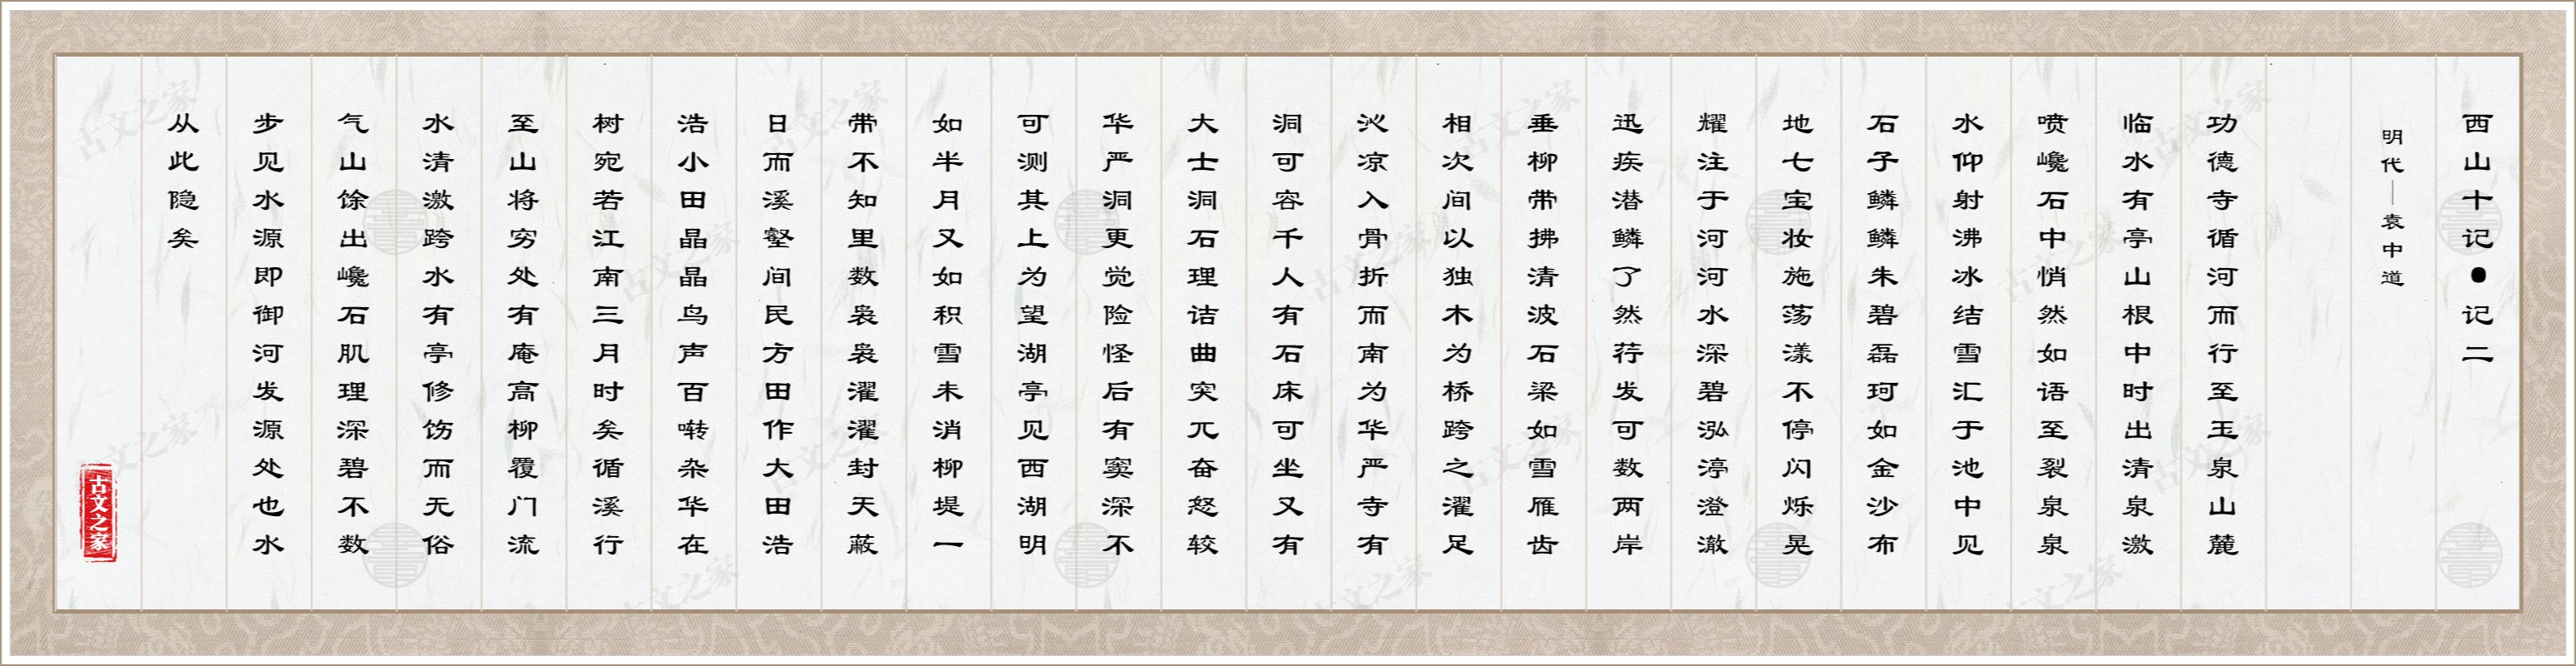 西山十记●记二
明代—袁中道
功德寺循河而行至玉泉山麓
临水有亭山根中时出清泉激
喷巉石中悄然如语至裂泉泉
水仰射沸冰结雪汇于池中见
石子鳞鳞朱碧磊珂如金沙布
地七宝妆施荡漾不停闪烁晃
耀注于河河水深碧泓渟澄澈
迅疾潜鳞了然荇发可数两岸
垂柳带拂清波石梁如雪雁齿
相次间以独木为桥跨之濯足
沁凉入骨折而南为华严寺有
洞可容千人有石床可坐又有
大士洞石理诘曲突兀奋怒较
华严洞更觉险怪后有窦深不
可测其上为望湖亭见西湖明
如半月又如积雪未消柳堤一
带不知里数袅袅濯濯封天蔽
日而溪壑间民方田作大田浩
浩小田晶晶鸟声百啭杂华在
树宛若江南三月时矣循溪行
至山将穷处有庵高柳覆门流
水清激跨水有亭修饬而无俗
气山馀出巉石肌理深碧不数
步见水源即御河发源处也水
从此隐矣
古文之家